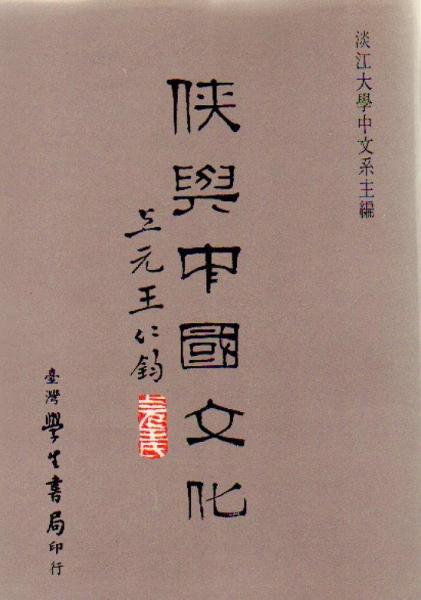 淡江大學中文系主編
俠與中國文化
上元王仁鈞
臺灣學生書局印行